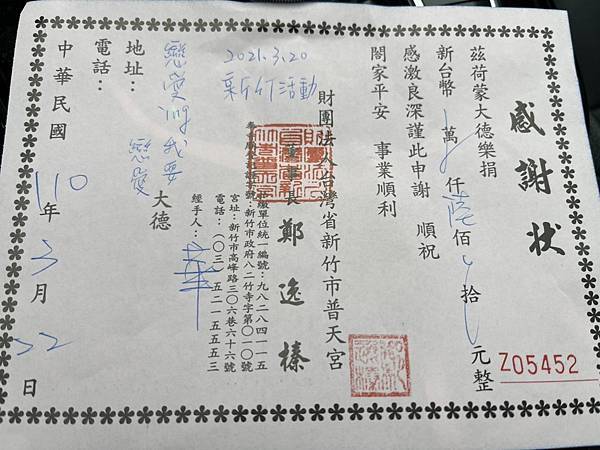 感謝狀
茲荷蒙大德樂捐
新台幣 萬 仟陸佰 拾 元整
感激良深謹此申謝 順祝
閤家平安 事業順利
財團法人台灣省新竹市普天宮
董事長 鄭逸榛
扣繳單位統一編號:九八二八四一一五
新竹市政府八二竹寺字第〇一〇號
宮址:新竹市高峰路三〇六巷六十六號
電話:(〇三)五二一五五五三
經手人:華
2021.3.20
新竹活動
戀愛ing我要
戀愛
大德
地址:
電話:
中華民國 110 年 3 月 22 日
Z05452